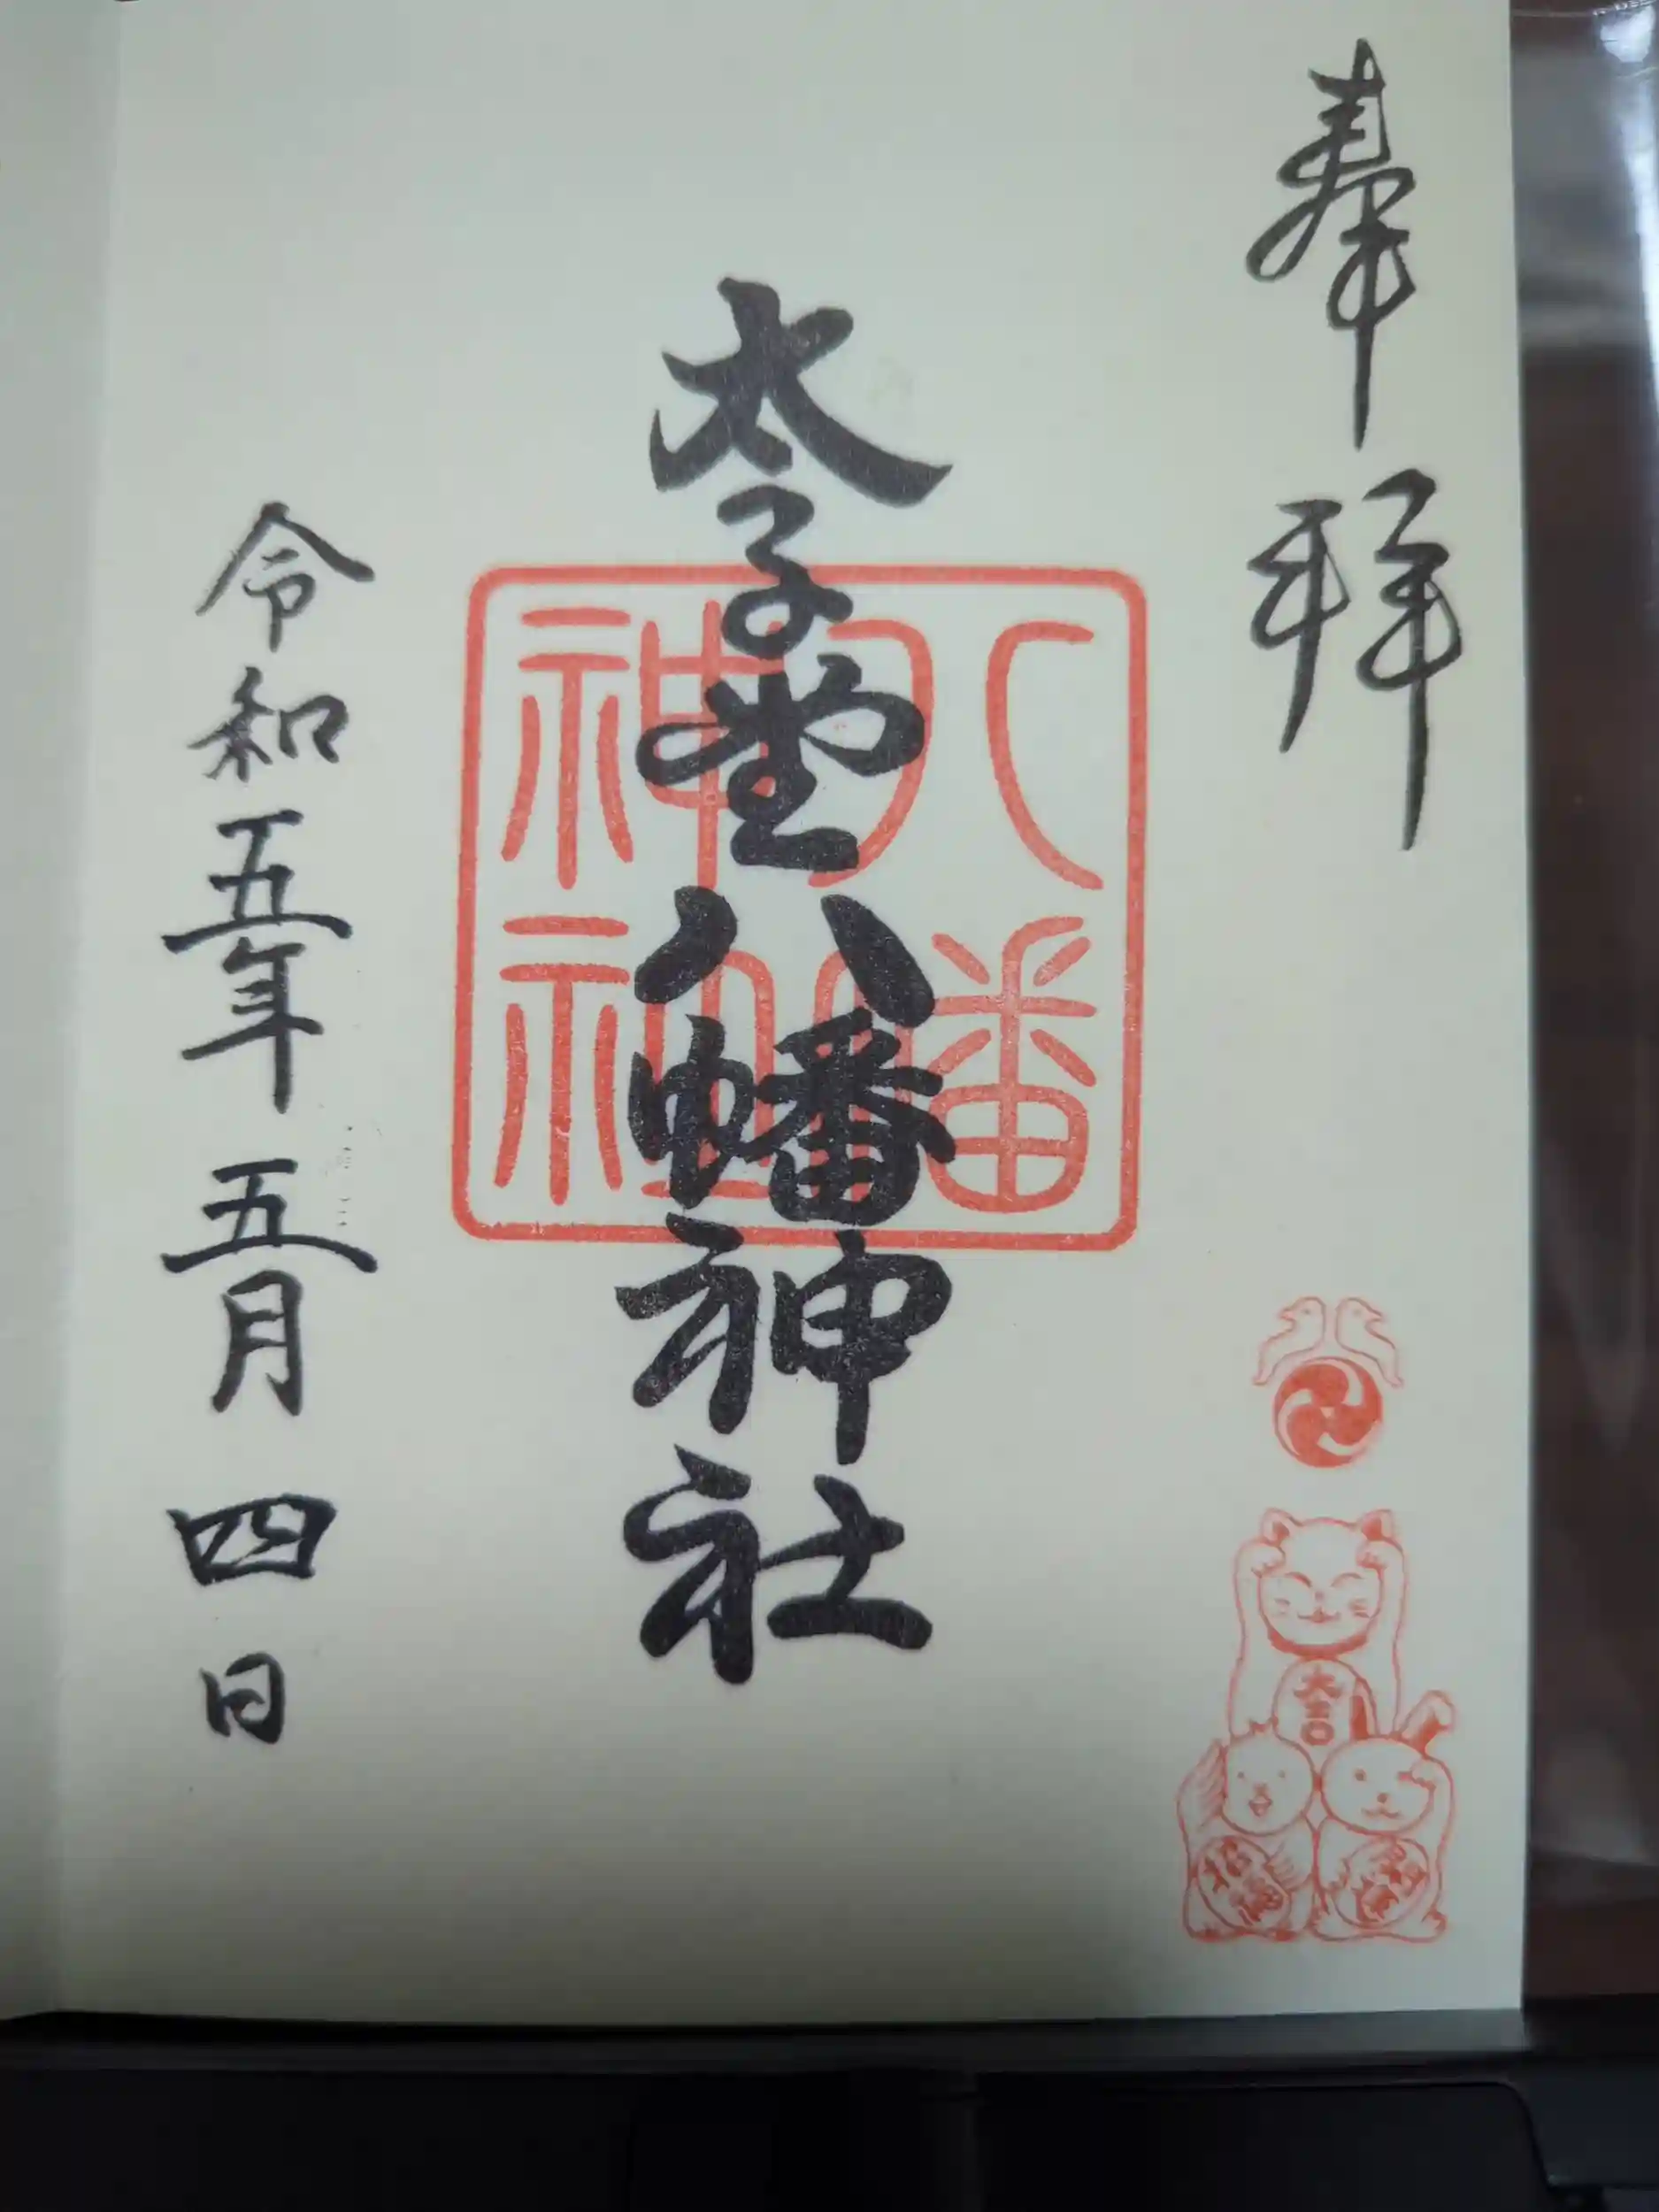 奉拝
大吉
招福
太子堂八幡神社
八幡
神社
令和五年五月四日